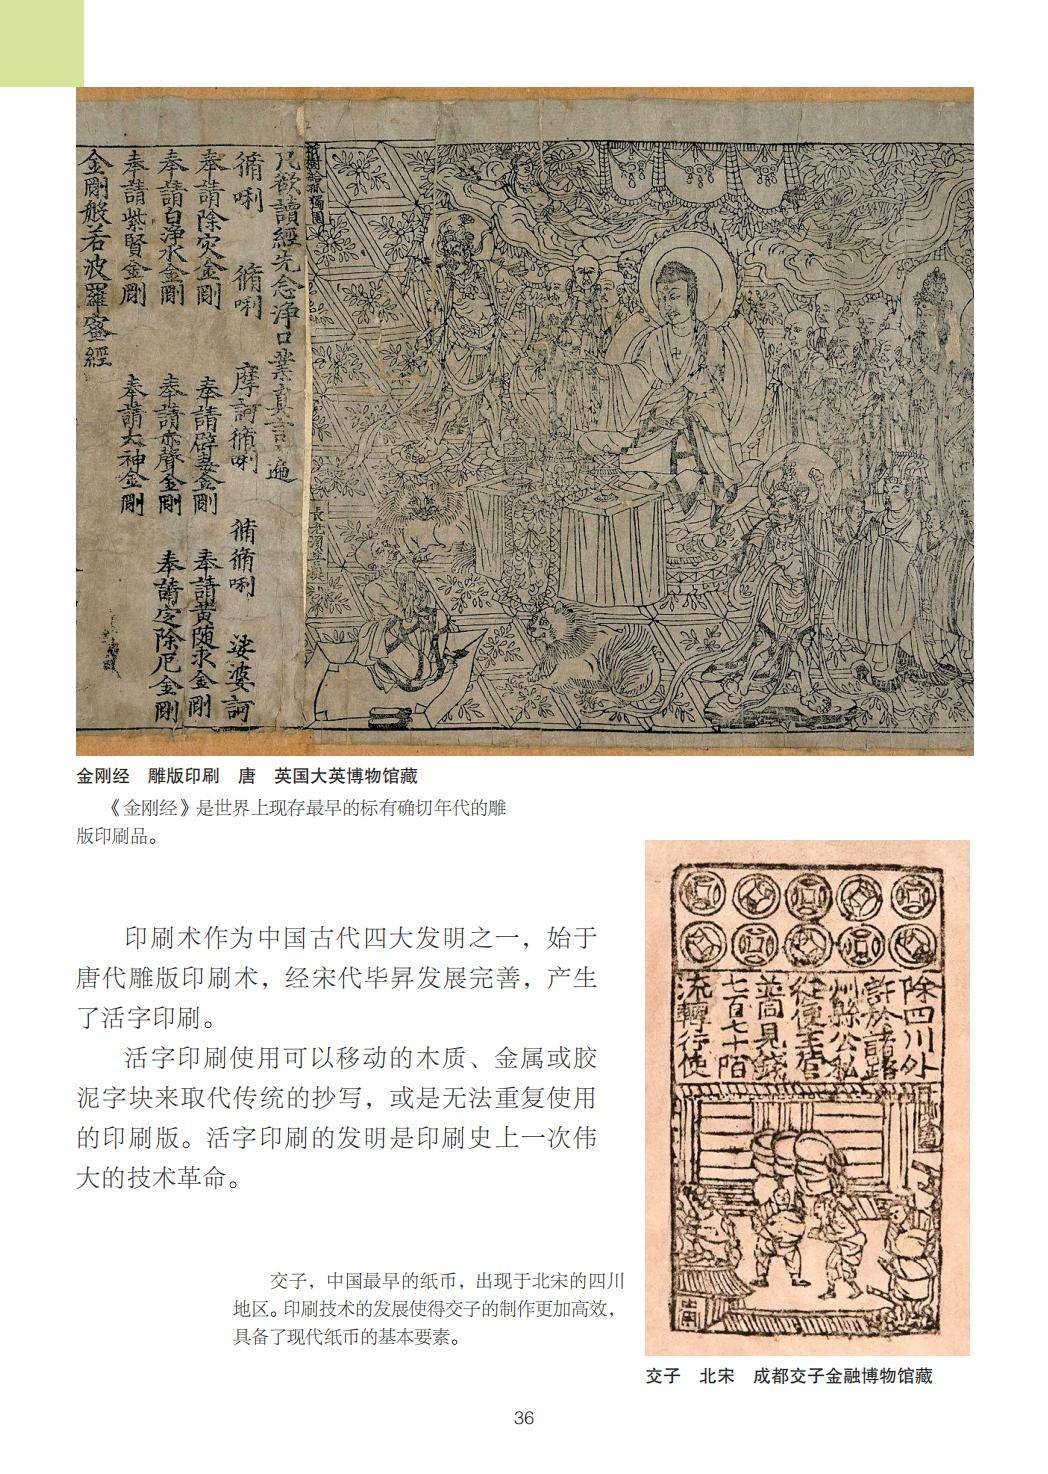 凡欲讀經先念淨口業真言一遍
脩唎 脩唎 摩訶脩唎 脩脩唎 娑婆訶
奉請除灾金剛 奉請辟毒金剛 奉請黃随求金剛
奉請白淨水金剛 奉請赤聲金剛 奉請定除厄金剛
奉請紫賢金剛 奉請大神金剛
金剛般若波羅蜜經
金刚经 雕版印刷 唐 英国大英博物馆藏
《金刚经》是世界上现存最早的标有确切年代的雕
版印刷品。
印刷术作为中国古代四大发明之一，始于
唐代雕版印刷术，经宋代毕昇发展完善，产生
了活字印刷。
活字印刷使用可以移动的木质、金属或胶
泥字块来取代传统的抄写，或是无法重复使用
的印刷版。活字印刷的发明是印刷史上一次伟
大的技术革命。
除四川外
許於諸路
州縣公私
從便主管
並同見錢
七百七十陌
流轉行使
交子，中国最早的纸币，出现于北宋的四川
地区。印刷技术的发展使得交子的制作更加高效，
具备了现代纸币的基本要素。
交子 北宋 成都交子金融博物馆藏
36